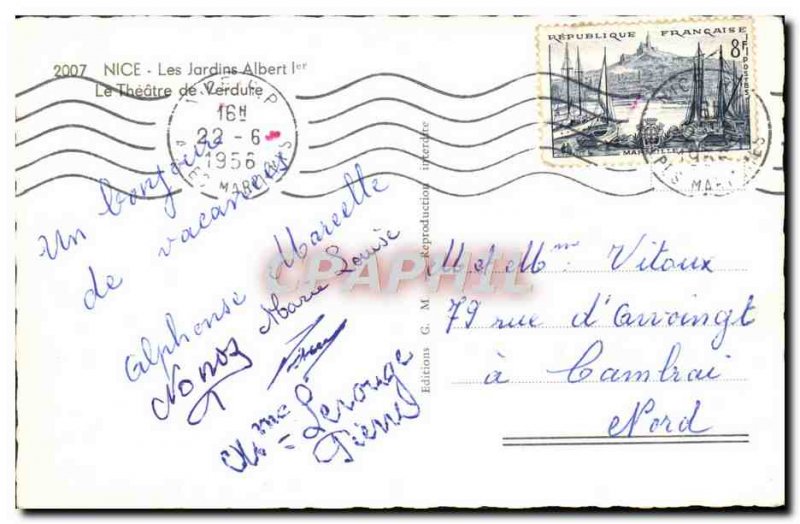 2007 NICE - Les Jardins Albert Ier
Le Théâtre de Verdure
16H
22-6
1956
MARITIMES
REPUBLIQUE FRANÇAISE
8F
POSTES
MARSEILLE
Un bonjour
de vacances
Alphonse Marcelle
Nonos Marie Louise
Mme Lerouge
Pierre
Editions G. M. Reproduction interdite
CPAPHIL
M et Mme Vitoux
79 rue d'Arvoingt
à Cambrai
Nord